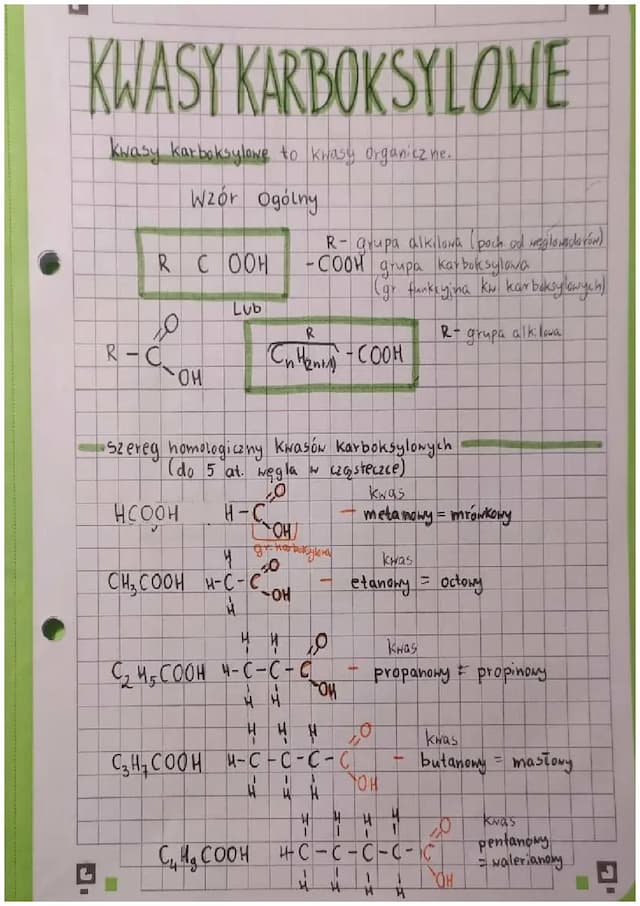 KWASY KARBOKSYLOWE
Kwasy karboksylowe to kwasy organiczne.
Wzór Ogólny
R C OOH
R- grupa alkilowa (poch od węglowodorów)
-COOH grupa karboksylowa
(gr funkcyjna kw karboksylowych)
Lub
R-C=O OH
R
CnH(2n+1) -COOH
R- grupa alkilowa
Szereg homologiczny kwasów karboksylowych
(do 5 at. węgla w cząsteczce)
HCOOH H-C=O OH - kwas metanowy = mrówkowy
gr. karboksylowa
CH3COOH H-C-C=O OH H H - kwas etanowy = octowy
C2H5COOH H-C-C-C=O OH H H H H - kwas propanowy = propinowy
C3H7COOH H-C-C-C-C=O OH H H H H H H - kwas butanowy = masłowy
C4H9COOH H-C-C-C-C-C=O OH H H H H H H H H kwas pentanowy = walerianowy